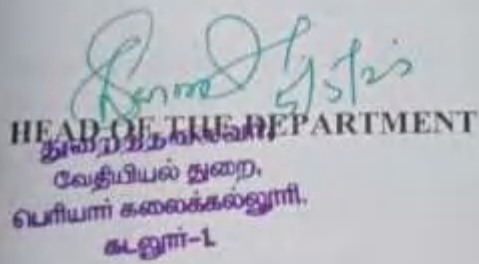 5/5/23
HEAD OF THE DEPARTMENT
துறைத்தலைவர்,
வேதியியல் துறை,
பெரியார் கலைக்கல்லூரி,
கடலூர்-1.